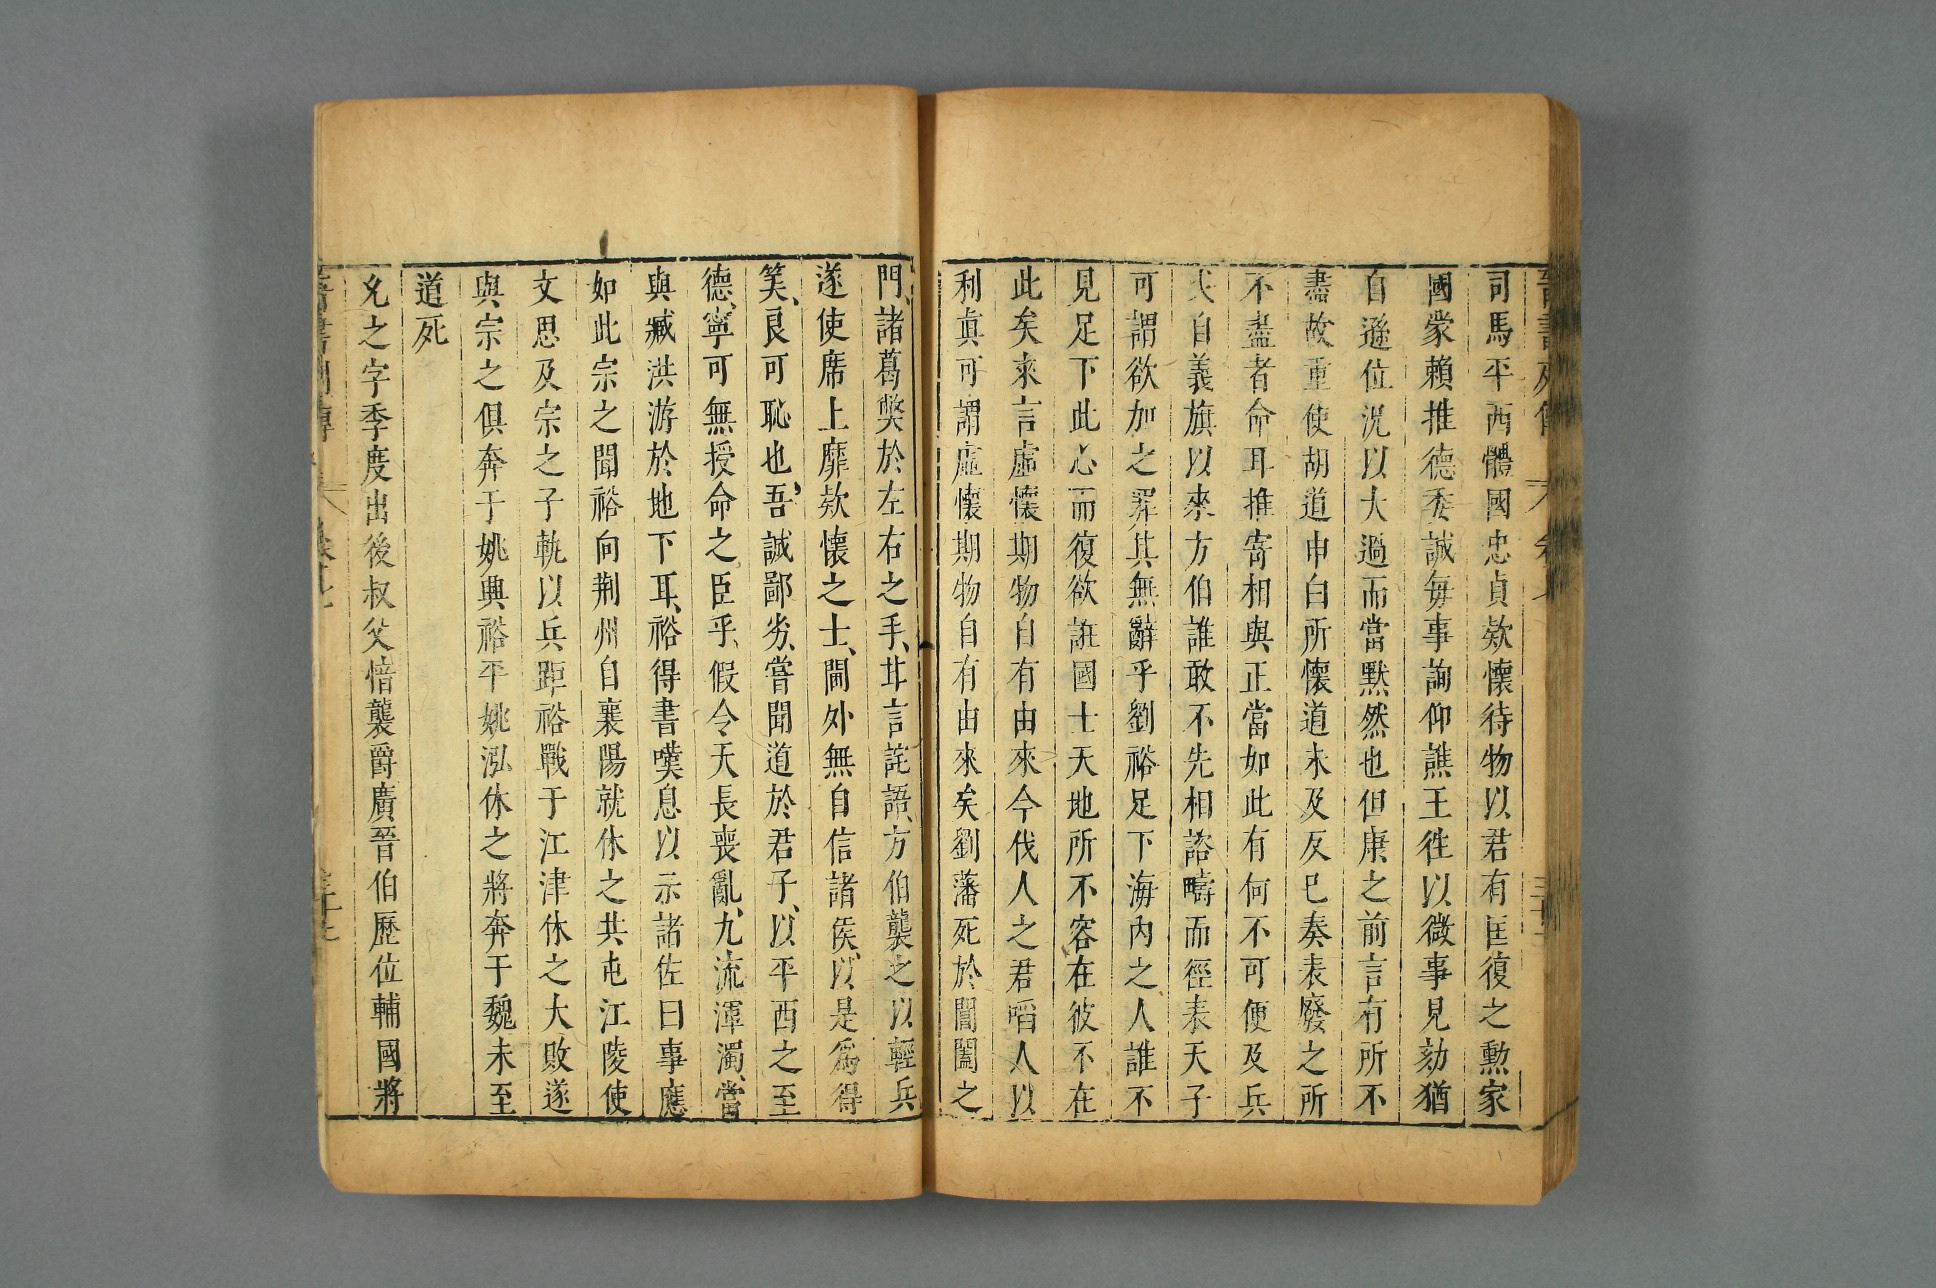 司馬平西體國忠貞欵懷待物以君有匡復之勲家
國蒙賴推德委誠每事詢仰譙王徃以微事見劾猶
自遜位況以大過而當默然也但康之前言有所不
盡故重使胡道申白所懷道未及反已奏表廢之所
不盡者命耳推寄相與正當如此有何不可便及兵
戈自義旗以來方伯誰敢不先相諮疇而徑表天子
可謂欲加之罪其無辭乎劉裕足下海內之人誰不
見足下此心而復欲誑國士天地所不容在彼不在
此矣來言虛懷期物自有由來今伐人之君啗人以
利真可謂虛懷期物自有由來矣劉藩死於閶闔之
門、諸葛斃於左右之手、甘言詫語、方伯襲之以輕兵
遂使席上靡欵懷之士、閫外無自信諸侯、以是爲得
筭、良可恥也、吾誠鄙劣、嘗聞道於君子、以平西之至
德、寧可無授命之臣乎、假令天長喪亂、九流渾濁、當
與臧洪游於地下耳、裕得書嘆息以示諸佐曰事應
如此宗之聞裕向荆州自襄陽就休之共屯江陵使
文思及宗之子軌以兵距裕戰于江津休之大敗遂
與宗之俱奔于姚興裕平姚泓休之將奔于魏未至
道死
允之字季度出後叔父愔襲爵廣晉伯歷位輔國將